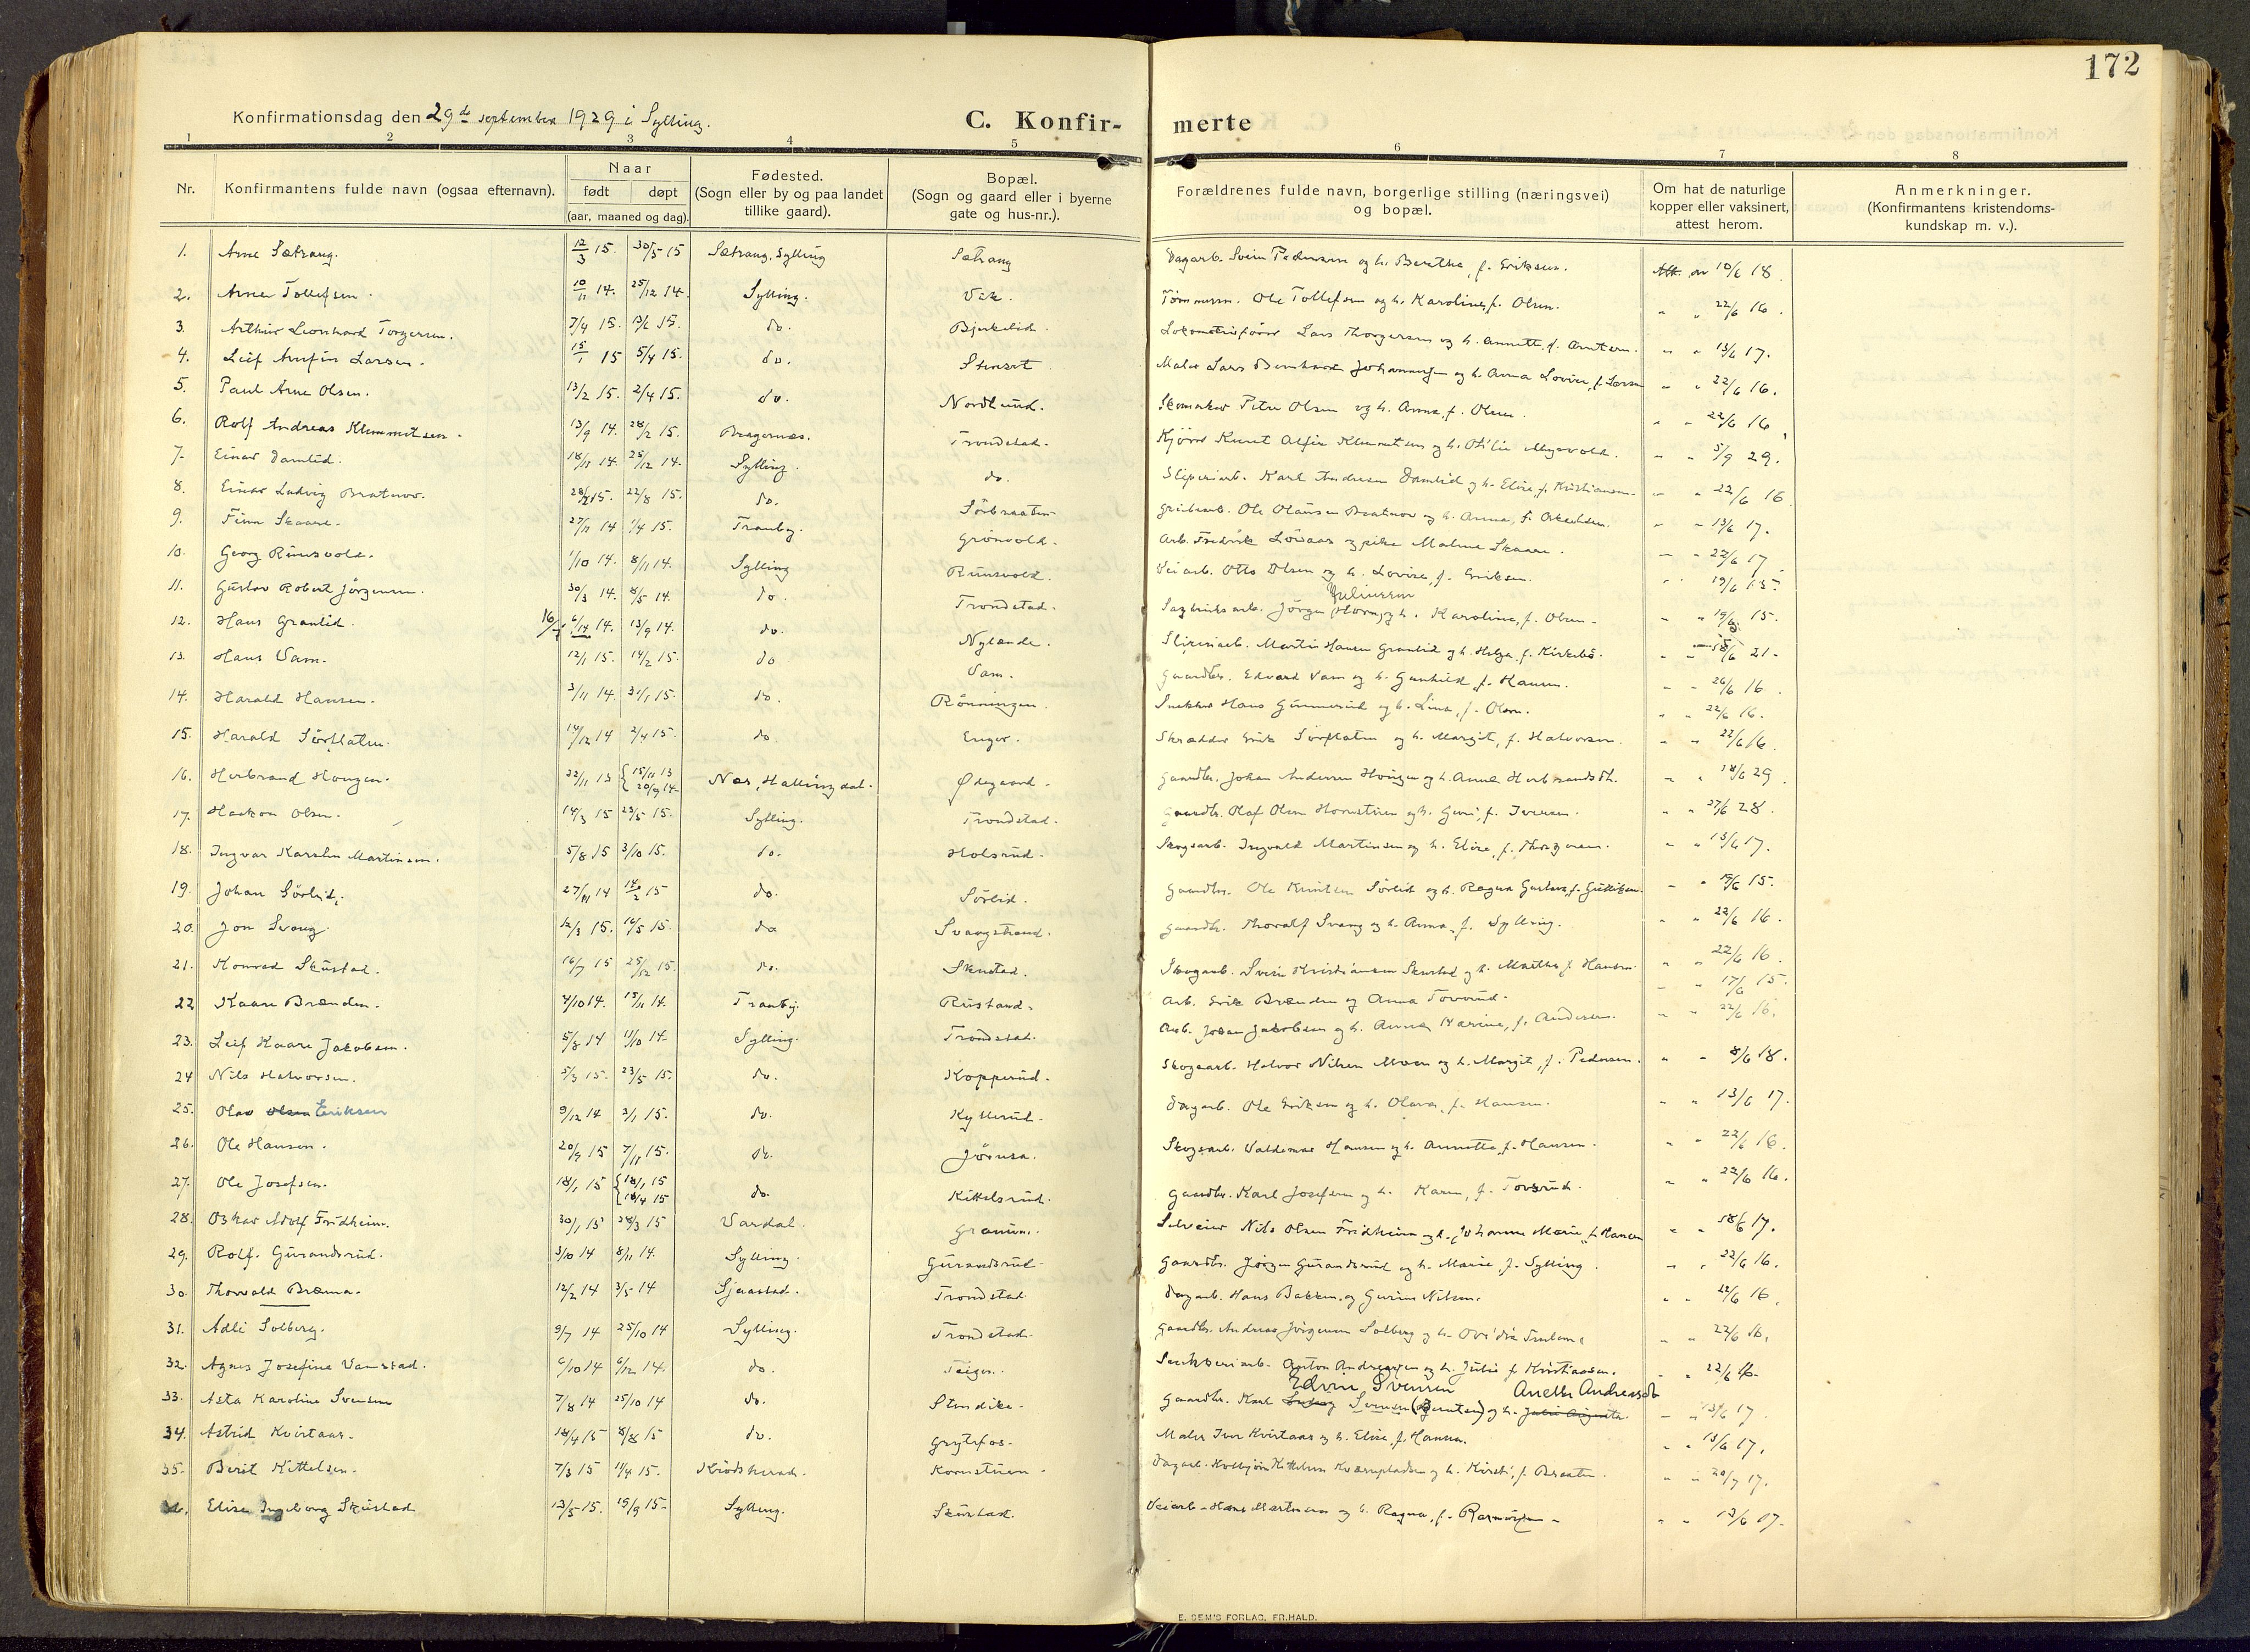 172
Konfirmationsdag den 29de september 1929 i Sylling.
C. Konfirmerte
1 2 3 4 5 6 7 8
Nr. Konfirmantens fulde navn (ogsaa efternavn). Naar født døpt (aar, maaned og dag). Fødested. (Sogn eller by og paa landet tillike gaard). Bopæl. (Sogn og gaard eller i byerne gate og hus-nr.). Forældrenes fulde navn, borgerlige stilling (næringsvei) og bopæl. Om hat de naturlige kopper eller vaksinert, attest herom. Anmerkninger. (Konfirmantens kristendomskundskap m. v.).
1. Arne Sætrang. 12/3 15. 30/5 15 Sætrang, Sylling Sætrang Dagarb. Svein Pedersen og h. Berthe, f. Eriksen. Att. av 10/6 18.
2. Arne Tollefsen. 10/11 14. 25/12 14. Sylling. Vik. Tømmerm. Ole Tollefsen og h. Karoline, f. Olsen. " " 22/6 16.
3. Arthur Leonhard Torgersen. 7/4 15. 13/6 15. do. Bjerkelid. Lokomotivfører Lars Thorgersen og h. Annette, f. " " 13/6 17.
4. Leif Arnfin Larsen. 15/1 15 5/4 15. do. Stenset Maler Lars Bernhard Johannessen og h. Anna Lovise, f. Larsen " " 22/6 16.
5. Paul Arne Olsen. 13/2 15. 2/4 15. do. Nordlund. Skomaker Peter Olsen og h. Anna, f. Olsen. " " 22/6 16.
6. Rolf Andreas Klemmetsen. 13/9 14. 28/2 15. Bragernes. Trondstad. Kjører Kunst Alfin Klemmetsen og h. Otilie Myrvold. " " 5/9 29.
7. Einar Damlid. 18/11 14. 25/12 14. Sylling. do. Sliperiarb. Karl Andersen Damlid og h. Elise, f. Kristiansen. " " 22/6 16
8. Einar Ludvig Bratmor. 15. 22/8 15. do. Sørbraaten Ole Olaussen Bratmor og h. Anna, f. " " 13/6 17.
9. Finn Skaare. 27/11 14 1/4 15. Tranby. Grønvold. Arb. Fredrik Løvaas og pike Malene Skaare. " " 22/6 17
10. Georg Runsvold. 1/10 14. 8/11 14. Sylling Runsvold. Veiarb. Otto Olsen og h. Lovise, f. Eriksen. " " 19/6 15.
11. Gustav Robert Jørgensen. 30/3 14. 8/5 14. do. Trondstad. Sagbruksarb. Jørgen Juliussen (Horn) og h. Karoline, f. Olsen. " " 19/6 15.
12. Hans Granlid. 16/7 14. 13/9 14. do. Nylænde. Sliperiarb. Martin Hansen Granlid og h. Helga, f. Kirkebø. " " 21.
13. Hans Vam. 12/1 15. 14/2 15. do Vam. Gaardbr. Edvard Vam og h. Gunhild, f. Hansen. " " 26/6 16.
14. Harald Hansen. 3/11 14. 31/1 15. do. Rønningen. Snekker Hans Gunnerud og h. Lina, f. Olsen. " " 22/6 16.
15. Harald Sørflaten. 14/12 14 2/4 15. do Enger. Skrædder Erik Sørflaten og h. Margit, f. Halvorsen. " " 22/6 16.
16. Herbrand Hougen. 22/11 13 { 15/11 13 20/9 14 Nes, Hallingdal. Ødegaard. Gaardbr. Johan Andersen Hougen og h. Anne Herbrandsdt. " " 18/6 29.
17. Haakon Olsen. 14/3 15 23/5 15. Sylling. Trondstad. Gaardbr. Olaf Olsen Hornstuen og h. Guri, f. Iversen. " " 27/6 28.
18. Ingvar Karsten Martinsen. 5/8 15 3/10 15. do. Holsrud. Skogsarb. Ingvald Martinsen og h. Elise, f. Thorgersen. " " 13/6 17.
19. Johan Sørlid. 27/11 14 14/2 15 do. Sørlid. Gaardbr. Ole Knutsen Sørlid og h. Ragna Gustava, f. Gulliksen. " " 19/6 15.
20. Jon Svang. 12/3 15. 16/5 15. do Svangstrand. Gaardbr. Thoralf Svang og h. Anna, f. Sylling. " " 22/6 16.
21. Konrad Skustad. 16/7 15 25/12 15. do. Skustad. Skogarb. Svein Kristiansen Skustad og h. Marthe, f. Hansen. " " 22/6 16.
22 Kaare Brænden. 4/10 14. 15/11 14. Tranby. Rustand. Arb. Erik Brænden og Anna Tovsrud. " " 17/6 15.
23. Leif Kaare Jakobsen. 5/8 14 11/10 14 Sylling. Trondstad. Arb. Johan Jakobsen og h. Anna Marine, f. Andersen. " " 22/6 16.
24 Nils Halvorsen. 5/3 15. 23/5 15. do. Kopperud. Skogsarb. Halvor Nilsen Moen og h. Margit, f. Pedersen. " " 8/6 18.
25. Olav Olsen Eriksen 9/12 14 3/1 15. do. Kyllerud. Dagarb. Ole Eriksen og h. Olava, f. Hansen. " " 13/6 17.
26. Ole Hansen. 20/9 15 7/11 15. do. Jørnsa. Skogsarb. Valdemar Hansen og h. Annette, f. Hansen. " " 22/6 16.
27. Ole Josefsen. 18/1 15 { 18/1 15 18/4 15 do. Kittelsrud. Gaardbr. Karl Josefsen og h. Karen, f. Tovsrud. " " 22/6 16.
28. Oskar Adolf Fridheim. 30/1 15 28/3 15 Vardal. Nils Olsen Fridheim og h. Johanne Marie, f. Hansen " " 18/6 17.
29. Rolf. Gurandsrud. 3/10 14 8/11 14. Sylling. Gurandsrud. Gaardbr. Jørgen Gurandsrud og h. Marie, f. Sylling. " " 22/6 16.
30. Thorvald Bræma. 12/2 14 3/5 14 Sjaastad. Trondstad Dagarb. Hans Bakken og Gurine Nilsen. " " 22/6 16.
31. Adli Solberg. 9/7 14 25/10 14 Sylling. Trondstad. Gaardbr. Andreas Jørgensen Solberg og h. Ovidia " " 22/6 16.
32. Agnes Josefine Vamstad. 6/10 14 6/12 14. do. Teigen. Anton Andreassen og h. Julie f. Kristiansen. " " 22/6 16.
33. Asta Karoline Svensen 7/8 14 25/10 14 do. Stendike. Gaardbr. Karl Edvin Svensen og h. Anette Andreasdt " " 13/6 17.
34. Astrid Kvistaas. 18/4 15 8/8 15 do. Grytefos. Maler Iver Kvistaas og h. Elise, f. Hansen. " " 13/6 17.
35. Berit Kittelsen. 7/3 15 11/4 15. Krødsherad. Kornstuen. Dagarb. Kolbjørn Kittelsen Kværnpladsen og h. Kirsti, f. Braaten. " " 20/7 17.
36. Elise Ingeborg Skustad 13/5 15. 19/9 15 Sylling. Skustad. Veiarb. Hans Martinsen og h. Ragna, f. Rasmussen " " 13/6 17.
E. SEM'S FORLAG, FR.HALD.